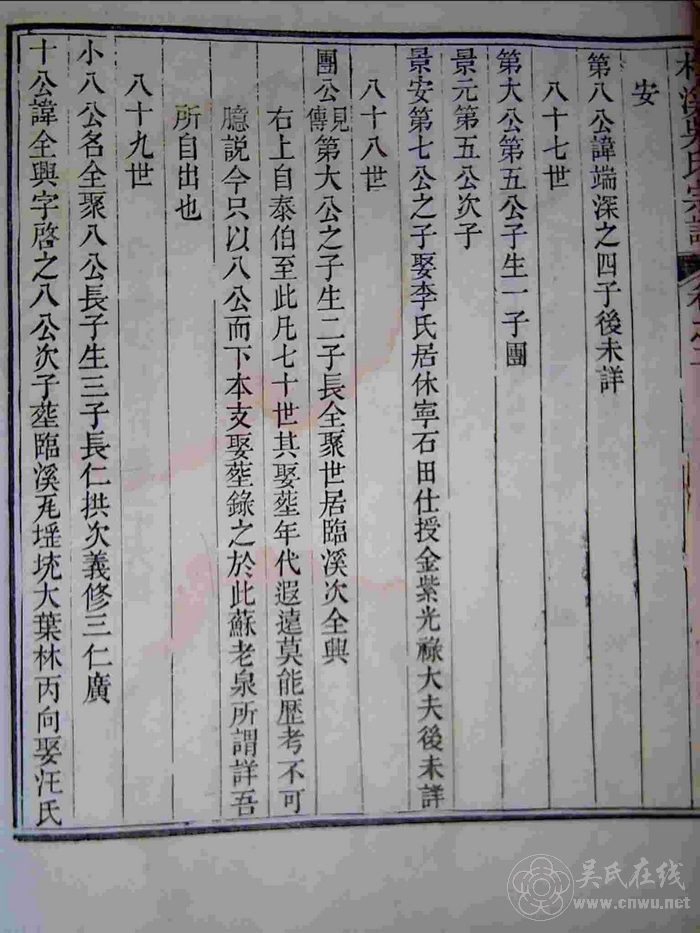 安
第八公諱端深之四子後未詳
八十七世
第大公第五公子生一子團
景元第五公次子
景安第七公之子娶李氏居休寧石田仕授金紫光祿大夫後未詳
八十八世
團公見傳第大公之子生二子長全聚世居臨溪次全興
右上自泰伯至此凡七十世其娶塟年代遐遠莫能歷考不可
臆説今只以八公而下本支娶塟錄之於此蘇老泉所謂詳吾
所自出也
八十九世
小八公名全聚八公長子生三子長仁拱次義修三仁廣
十公諱全興字啓之八公次子塟臨溪瓦瑶坑大葉林丙向娶汪氏
吴氏在线
www.cnwu.net